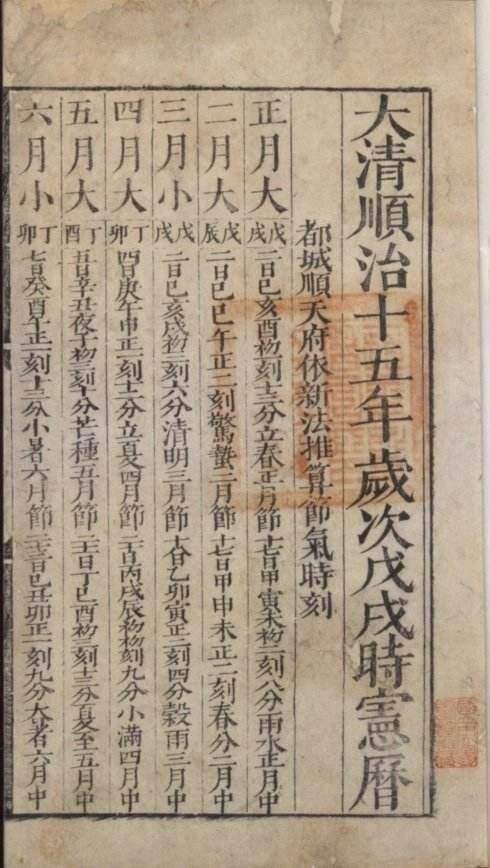 大清順治十五年歲次戊戌時憲曆
都城順天府依新法推算節氣時刻
正月大 戊戌 二日己亥酉初三刻十三分立春正月節 十七日甲寅未初三刻八分雨水正月中
二月大 戊辰 二日己巳午正二刻驚蟄二月節 十七日甲申未正二刻春分二月中
三月小 戊戌 二日己亥戌初三刻六分清明三月節 十八日乙卯寅正三刻四分穀雨三月中
四月大 丁卯 四日庚午申正一刻十二分立夏四月節 二十日丙戌辰初初刻九分小滿四月中
五月大 丁酉 五日辛丑夜子初三刻十分芒種五月節 二十一日丁巳酉初三刻十三分夏至五月中
六月小 丁卯 七日癸酉午正一刻十三分小暑六月節 二十三日己丑卯正一刻九分大暑六月中